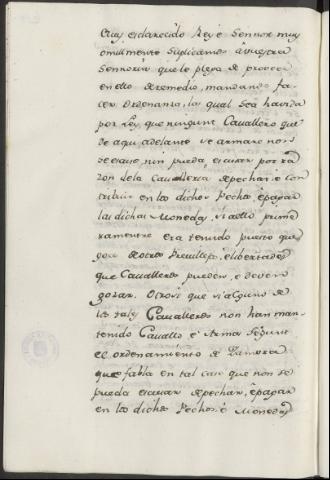 Muy esclarecido Rey e Sennor muy
omillmente Suplicamos á vuestra
Sennoria que le plega de proveer
en ello de remedio, mandando fa-
cer ordenanza, la qual sea havida
por Ley, que ningunt Cavallero que
de aqui adelante se armare non
se escuse, nin pueda escusar por ra-
zon de la Cavalleria de pechar é con-
tribuir en los dichos Pechos, é pagar
las dichas Monedas, si a ello prime-
ramente era tenido puesto que
goce de otros Previllejos, é libertades
que Cavalleros pueden, é deven
gozar. Otrosi que si alguno de
los tales Cavalleros non han man-
tenido Cavallo é Armas segunt
el ordenamiento de Zamora
que fabla en tal caso que non se
pueda escusar de pechar, é pagar
en los dichos Pechos é Monedas